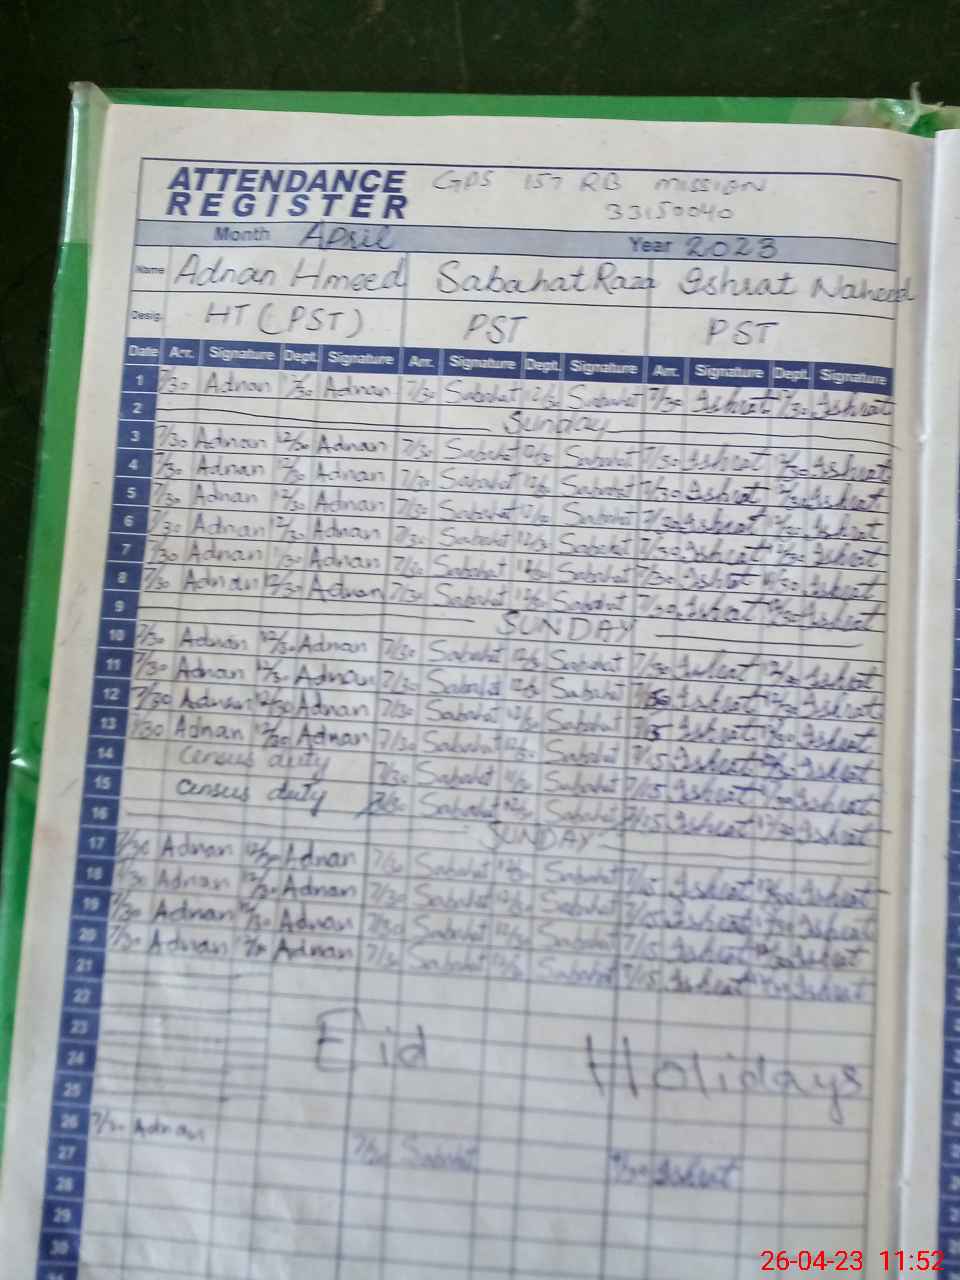 ATTENDANCE GPS 157 RB MISSION
REGISTER 33150040
Month April Year 2023
Name Adnan Hmeed Sabahat Raza Ishrat Naheed
Desig. HT (PST) PST PST
Date Arr. Signature Dept. Signature Arr. Signature Dept. Signature Arr. Signature Dept. Signature
1 7/30 Adnan 12/30 Adnan 7/30 Sabahat 12/30 Sabahat 7/30 Ishrat Ishrat
2 Sunday
3 7/30 Adnan 12/30 Adnan 7/30 Sabahat 12/30 Sabahat 7/30 Ishrat 12/30 Ishrat
4 7/30 Adnan 12/30 Adnan 7/30 Sabahat 12/30 Sabahat 7/30 Ishrat Ishrat
5 7/30 Adnan 12/30 Adnan 7/30 Sabahat 12/30 Sabahat 7/30 Ishrat 12/30 Ishrat
6 7/30 Adnan 12/30 Adnan 7/30 Sabahat 12/30 Sabahat 7/30 Ishrat 12/30 Ishrat
7 7/30 Adnan Adnan 7/30 Sabahat 12/30 Sabahat 7/30 Ishrat Ishrat
8 7/30 Adnan 12/30 Adnan 7/30 Sabahat 12/30 Sabahat 7/30 Ishrat Ishrat
9 SUNDAY
10 7/30 Adnan 12/30 Adnan 7/30 Sabahat 12/30 Sabahat 7/30 Ishrat Ishrat
11 7/30 Adnan 12/30 Adnan 7/30 Sabahat 12/30 Sabahat Ishrat Ishrat
12 7/30 Adnan 12/30 Adnan 7/30 Sabahat 12/30 Sabahat 7/15 Ishrat Ishrat
13 7/30 Adnan 12/30 Adnan 7/30 Sabahat 12/30 Sabahat 7/15 Ishrat Ishrat
14 census duty 7/30 Sabahat Sabahat 7/15 Ishrat Ishrat
15 census duty 7/30 Sabahat 12/30 Sabahat 7/15 Ishrat 12/30 Ishrat
16 SUNDAY
17 7/30 Adnan 12/30 Adnan 7/30 Sabahat 12/30 Sabahat 7/15 Ishrat 12/30 Ishrat
18 7/30 Adnan 12/30 Adnan 7/30 Sabahat 12/30 Sabahat 7/15 Ishrat Ishrat
19 7/30 Adnan 12/30 Adnan 7/30 Sabahat 12/30 Sabahat 7/15 Ishrat Ishrat
20 7/30 Adnan Adnan 7/30 Sabahat 12/30 Sabahat 7/15 Ishrat Ishrat
21
22
23 Eid Holidays
24
25
26 7/30 Adnan 7/30 Sabahat Ishrat
27
28
29
30
26-04-23 11:52